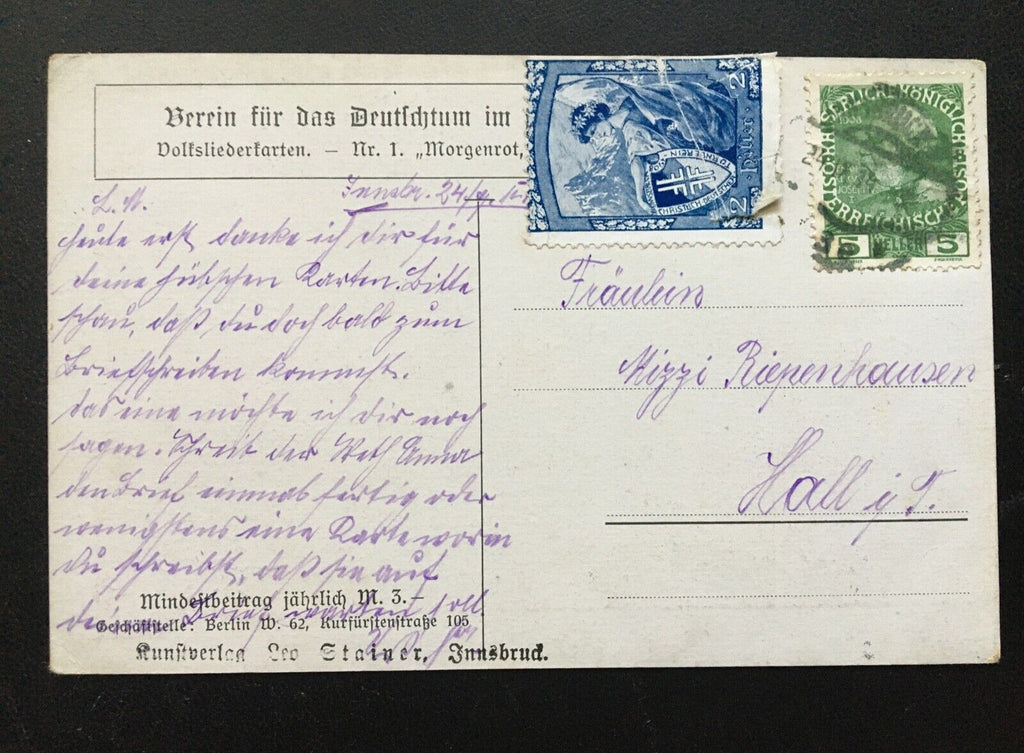 Verein für das Deutschtum im
Volksliederkarten. – Nr. 1. „Morgenrot,
Innsbr. 24/9.
L. M.
heute erst danke ich dir für
deine hübschen Karten. Bitte
schau, daß du doch bald zum
Briefschreiben kommst.
das eine möchte ich dir noch
sagen. Schreib der Anna
den Brief einmal fertig oder
wenigstens eine Karte worin
du schreibst, daß sie auf
Brief warten soll
Mindestbeitrag jährlich M. 3.–
Geschäftstelle: Berlin W. 62, Kurfürstenstraße 105
Kunstverlag Leo Stainer, Innsbruck.
2 Heller 2
TURNVEREIN
CHRISTLICH DEUTSCHER
KAISERLICH KÖNIGLICHE
ÖSTERREICHISCHE
1908
5 HELLER 5
Fräulein
Mizzi Riepenhausen
Hall i/T.